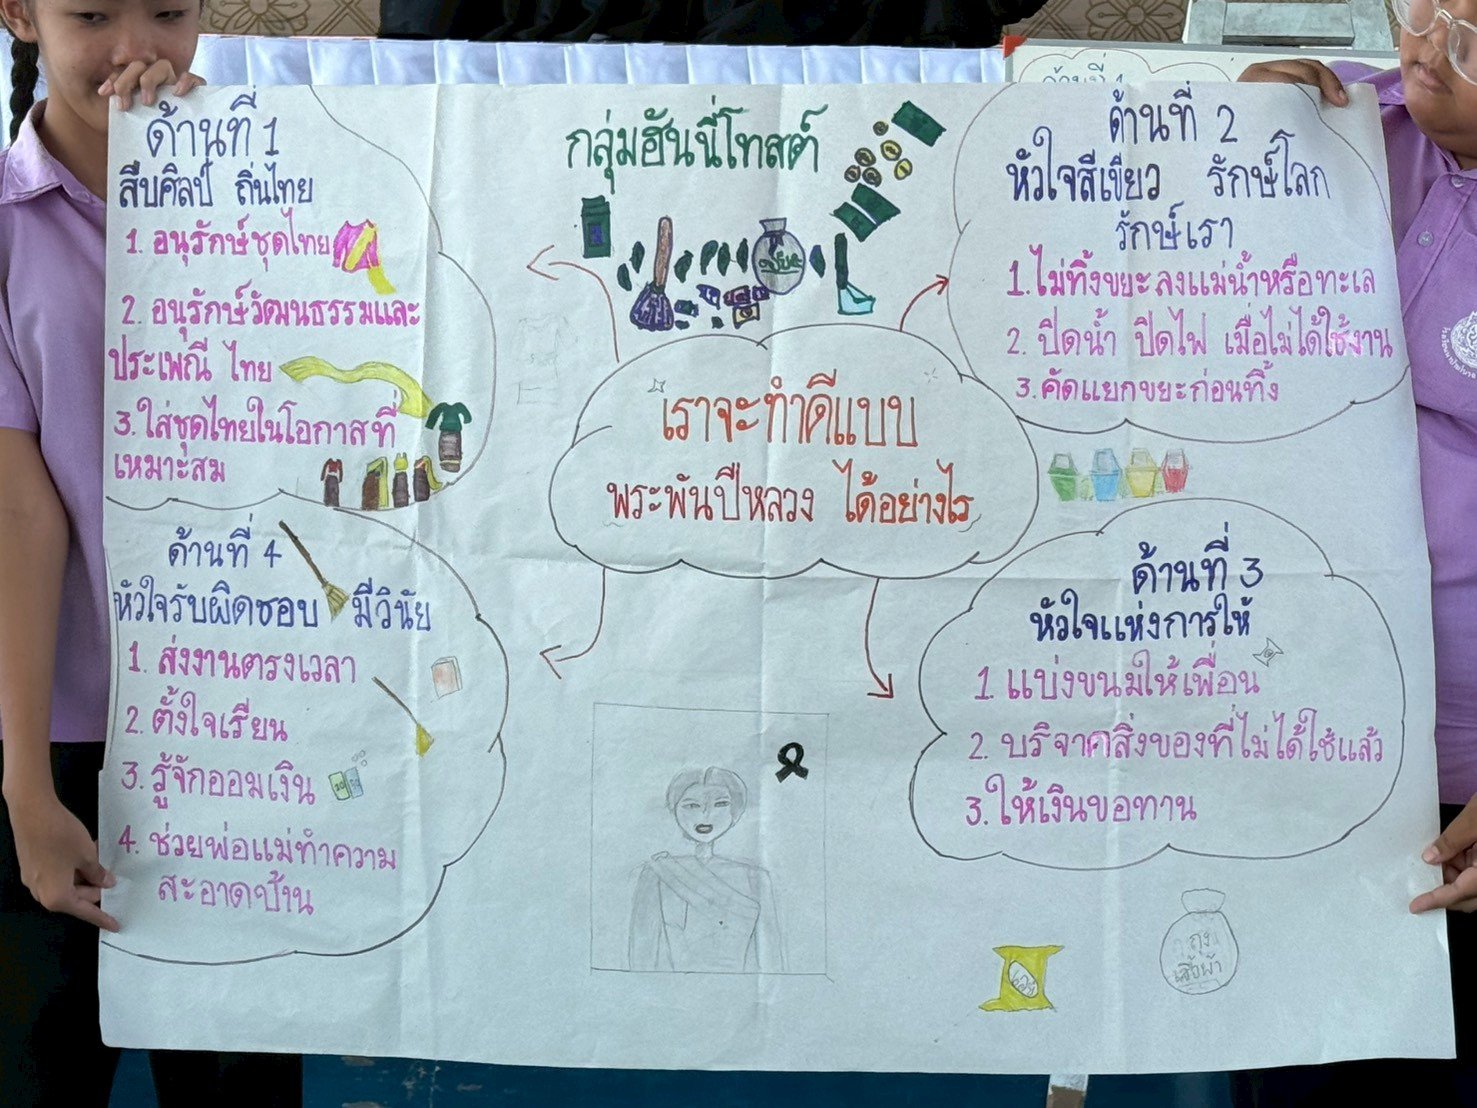 กลุ่มฮันนี่โทสต์
ด้านที่ 1
สืบศิลป์ ถิ่นไทย
1. อนุรักษ์ชุดไทย
2. อนุรักษ์วัฒนธรรมและ
ประเพณี ไทย
3. ใส่ชุดไทยในโอกาสที่
เหมาะสม
ด้านที่ 2
หัวใจสีเขียว รักษ์โลก
รักษ์เรา
1. ไม่ทิ้งขยะลงแม่น้ำหรือทะเล
2. ปิดน้ำ ปิดไฟ เมื่อไม่ได้ใช้งาน
3. คัดแยกขยะก่อนทิ้ง
ขยะ
เราจะทำดีแบบ
พระพันปีหลวง ได้อย่างไร
ด้านที่ 3
หัวใจแห่งการให้
1. แบ่งขนมให้เพื่อน
2. บริจาคสิ่งของที่ไม่ได้ใช้แล้ว
3. ให้เงินขอทาน
ด้านที่ 4
หัวใจรับผิดชอบ มีวินัย
1. ส่งงานตรงเวลา
2. ตั้งใจเรียน
3. รู้จักออมเงิน
4. ช่วยพ่อแม่ทำความ
สะอาดบ้าน
ถุง
เสื้อผ้า
ด้านที่ 1